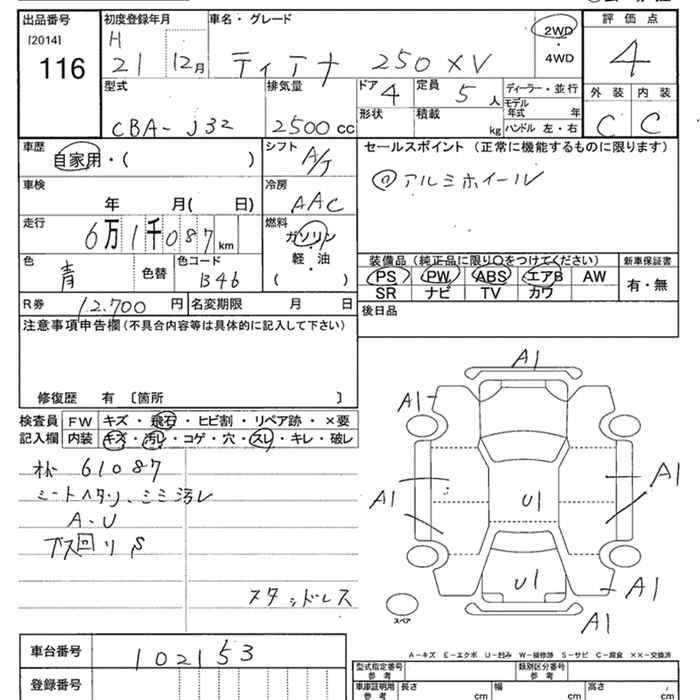 出品番号 初度登録年月 車名・グレード 評価点
[2014] H 2WD
116 21 12月 ティアナ 250XV ・ 4
4WD
型式 排気量 ドア 4 定員 5人 ディーラー・並行 外装 内装
CBA-J32 2500cc 形状 積載 kg モデル年式 年 C C
ハンドル 左・右
車歴 シフト セールスポイント (正常に機能するものに限ります)
自家用・( ) A/T アルミホイール
車検 冷房
年 月( 日) AAC
走行 燃料
6万1千087km ガソリン
軽・油
( )
色 色替 色コード 装備品(純正品に限り○をつけてください) 新車保証書
青 B46 PS PW ABS エアB AW 有・無
SR ナビ TV カワ
R券 12,700円 名変期限 月 日 後日品
注意事項申告欄(不具合内容等は具体的に記入して下さい)
修復歴 有 〔箇所 〕
検査員 FW キズ・飛石・ヒビ割・リペア跡・×要
記入欄 内装 キズ・汚レ・コゲ・穴・スレ・キレ・破レ
61087
シートヘタリ、シミ汚レ
A・U
下回りS
スタッドレス
A1
A1
A1 U1 A1
U1 A1
A1
スペア
A-キズ E-エクボ U-凹み W-補修跡 S-サビ C-腐食 XX-交換済
車台番号 102153
型式指定番号 参考 類別区分番号 参考
登録番号 車庫証明用 参考 長さ cm 幅 cm 高さ cm